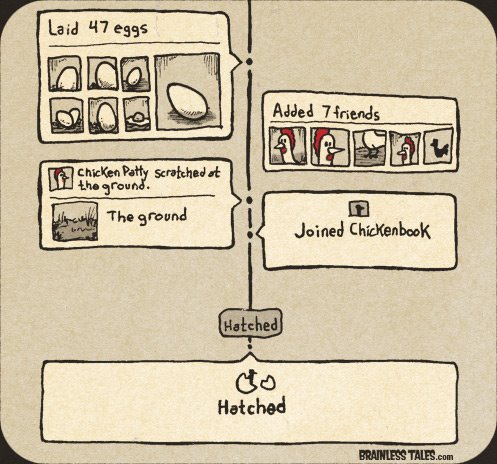 Laid 47 eggs
Added 7 friends
Chicken Patty scratched at
the ground.
The ground
Joined Chickenbook
Hatched
Hatched
BRAINLESS TALES.com